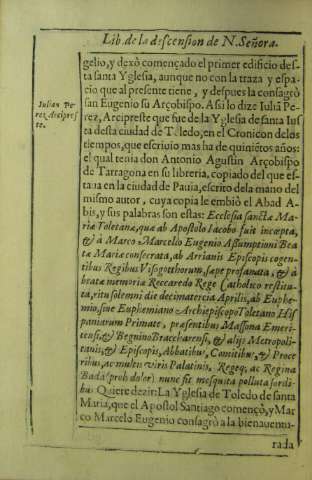 Lib. de la descension de N. Señora.
gelio, y dexò començado el primer edificio des-
ta santa Yglesia, aunque no con la traza y espa-
cio que al presente tiene, y despues la consagrò
san Eugenio su Arçobispo. Asi lo dize Iuliã Pe-
rez, Arcipreste que fue de la Yglesia de santa Ius
ta desta ciudad de Toledo, en el Cronicon de los
tiempos, que escriuio mas ha de quiniẽtos años:
el qual tenia don Antonio Agustin Arçobispo
de Tarragona en su libreria, copiado del que es-
taua en la ciudad de Pauia, escrito de la mano del
mismo autor, cuya copia le embiò el Abad A-
bis, y sus palabras son estas: Ecclesia sanctæ Ma-
riæ Toletanæ, quæ ab Apostolo Iacobo fuit incœpta,
& à Marco Marcello Eugenio Assumptioni Bea
tæ Mariæ consecrata, ab Arrianis Episcopis cogen
tibus Regibus Visogotthorum, sæpe profanata, & à
bratæ memoriæ Reccaredo Rege Catholico restitu
ta, ritu solemni die decimatertia Aprilis, ab Euphe-
mio, siue Euphemiano Archiepiscopo Toletano His
paniarum Primate, præsentibus Massona Emeri-
tensi, & Beguino Bracharensi, & alijs Metropoli-
tanis, & Episcopis, Abbatibus, Comitibus, & Proce
ribus, ac multis viris Palatinis, Rege, ac Regina
Bada (proh dolor) nunc sit mesquita polluta sordi-
bus Quiere dezir: La Yglesia de Toledo de santa
Maria, que el Apostol Santiago començò, y Mar
co Marcelo Eugenio consagrò a la bienauentu-
rada
Iulian Pe-
rez Arcipres
te.